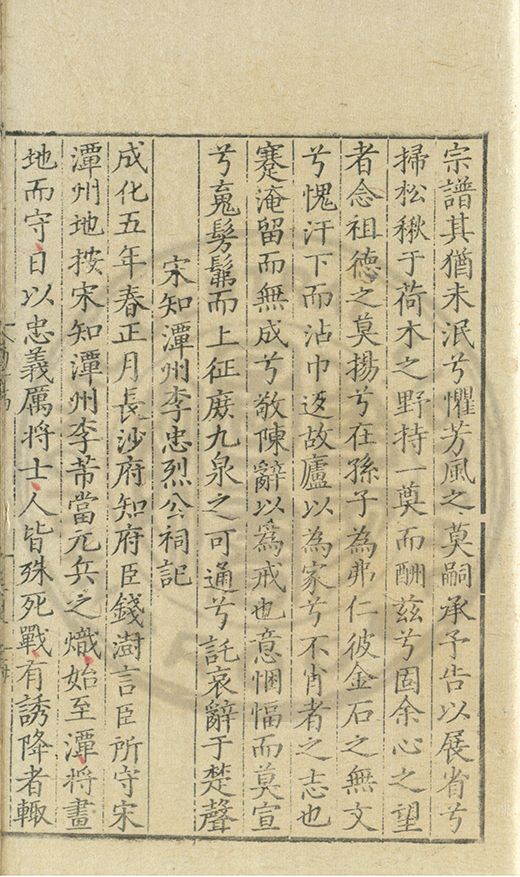 宗譜其猶未泯兮懼芳風之莫嗣承予告以展省兮
掃松楸于荷木之野持一奠而酬茲兮固余心之望
者念祖德之莫揚兮在孫子為弗仁彼金石之無文
兮愧汗下而沾巾返故廬以為家兮不肖者之志也
蹇淹留而無成兮敬陳辭以爲戒也意悃愊而莫宣
兮䰟髣髴而上征庶九泉之可通兮託哀辭于楚聲
宋知潭州李忠烈公祠記
成化五年春正月長沙府知府臣錢澍言臣所守宋
潭州地按宋知潭州李芾當元兵之熾始至潭將畫
地而守日以忠義厲將士人皆殊死戰有誘降者輙